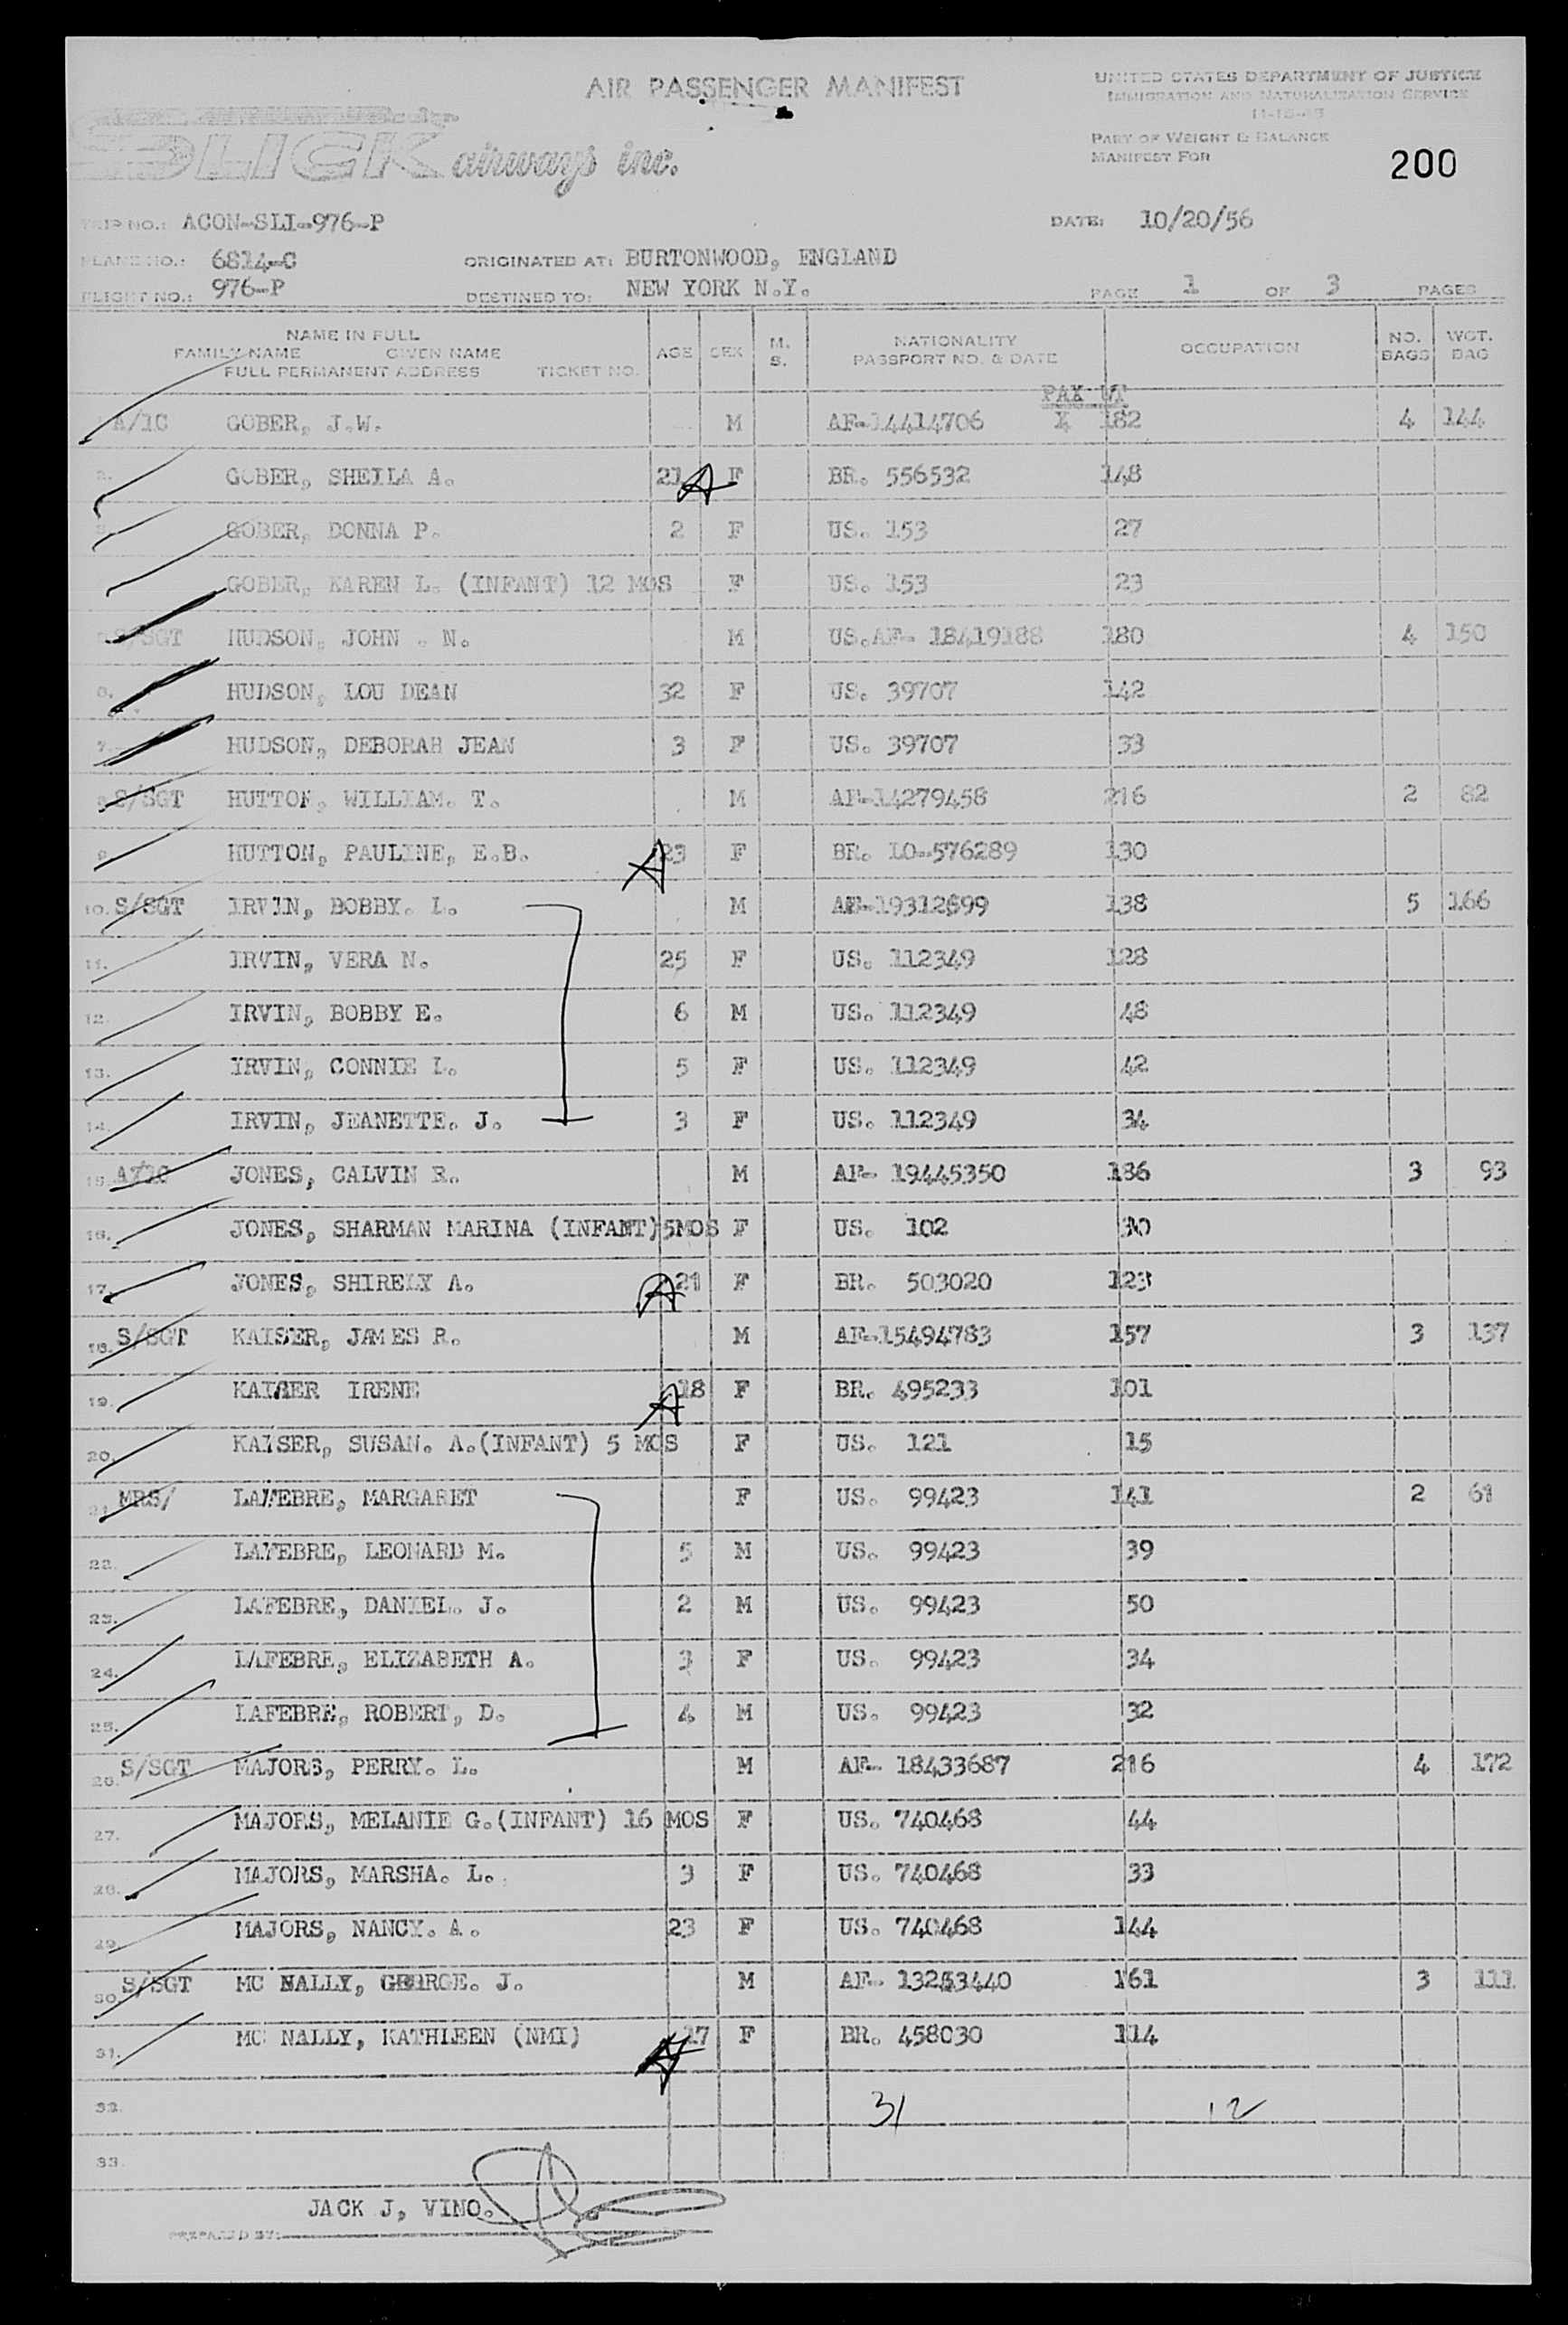 AIR PASSENGER MANIFEST
UNITED STATES DEPARTMENT OF JUSTICE
IMMIGRATION AND NATURALIZATION SERVICE
PART OF WEIGHT & BALANCE
MANIFEST FOR
200
SLICK airways inc.
TRIP NO.: ACON-SLI-976-P DATE: 10/20/56
PLANE NO.: 6814-C ORIGINATED AT: BURTONWOOD, ENGLAND
FLIGHT NO.: 976-P DESTINED TO: NEW YORK N.Y. PAGE 1 OF 3 PAGES
NAME IN FULL
FAMILY NAME GIVEN NAME
FULL PERMANENT ADDRESS TICKET NO. AGE SEX M. S. NATIONALITY PASSPORT NO. & DATE OCCUPATION NO. BAGS WGT. BAG
PAX WT
A/1C GOBER, J.W. M AF-14414706 X 182 4 144
2. GOBER, SHEILA A. 21 A F BR. 556532 148
3. GOBER, DONNA P. 2 F US. 153 27
GOBER, KAREN L. (INFANT) 12 MOS F US. 153 23
S/SGT HUDSON, JOHN . N. M US.AF- 18419188 180 4 150
6. HUDSON, LOU DEAN 32 F US. 39707 142
7. HUDSON, DEBORAH JEAN 3 F US. 39707 33
S/SGT HUTTON, WILLIAM. T. M AF-14279458 216 2 82
9. HUTTON, PAULINE, E.B. A 23 F BR. LO-576289 130
10. S/SGT IRVIN, BOBBY. L. M AF-19312699 138 5 166
11. IRVIN, VERA N. 25 F US. 112349 128
12. IRVIN, BOBBY E. 6 M US. 112349 48
13. IRVIN, CONNIE L. 5 F US. 112349 42
14. IRVIN, JEANETTE. J. 3 F US. 112349 34
15. A/1C JONES, CALVIN R. M AF- 19445350 186 3 93
16. JONES, SHARMAN MARINA (INFANT) 5MOS F US. 102 30
17. JONES, SHIRELY A. A 21 F BR. 503020 123
18. S/SGT KAISER, JAMES R. M AF-15494783 157 3 137
19. KAISER IRENE A 18 F BR. 495233 101
20. KAISER, SUSAN. A.(INFANT) 5 MOS F US. 121 15
21. MRS/ LAFEBRE, MARGARET F US. 99423 141 2 61
22. LAFEBRE, LEONARD M. 5 M US. 99423 39
23. LAFEBRE, DANIEL. J. 2 M US. 99423 50
24. LAFEBRE, ELIZABETH A. 3 F US. 99423 34
25. LAFEBRE, ROBERT, D. 4 M US. 99423 32
26. S/SGT MAJORS, PERRY. L. M AF- 18433687 216 4 172
27. MAJORS, MELANIE G.(INFANT) 16 MOS F US. 740468 44
28. MAJORS, MARSHA. L. 3 F US. 740468 33
29. MAJORS, NANCY. A. 23 F US. 740468 144
30. S/SGT MC NALLY, GEORGE. J. M AF- 13253440 161 3 111
31. MC NALLY, KATHLEEN (NMI) A 27 F BR. 458030 114
32. 31 12
33.
JACK J, VINO.
PREPARED BY: